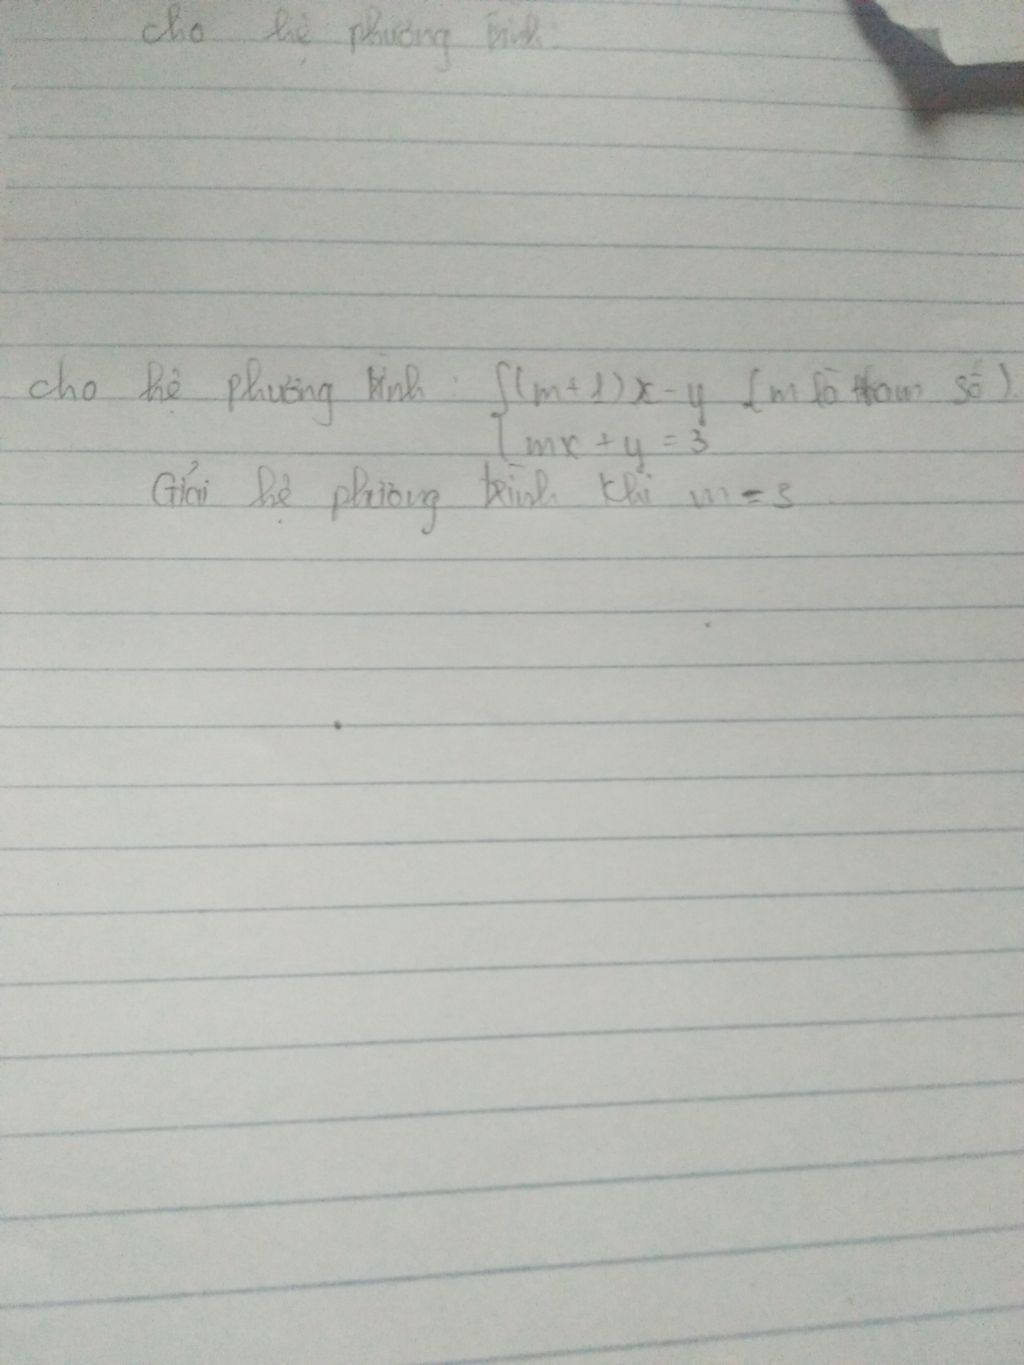 cho hệ phương trình:
cho hệ phương trình: {(m+1)x-y (m là tham số).
{mx+y=3
Giải hệ phương trình khi m=3